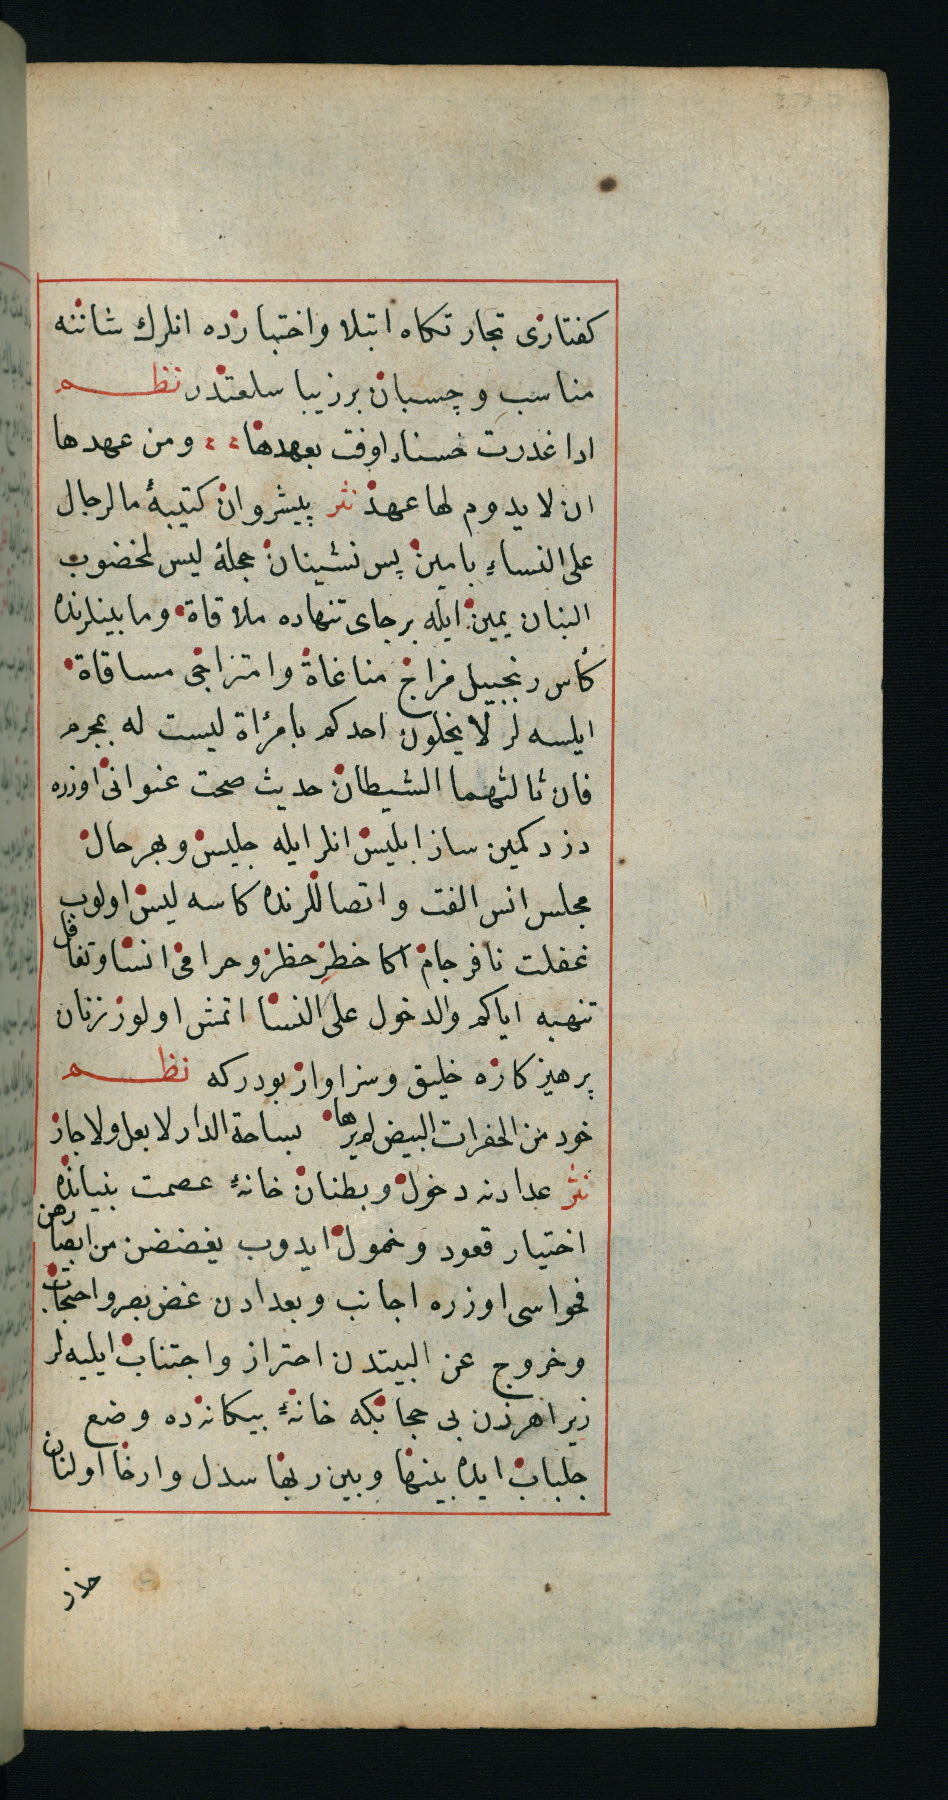 كفتارى تجارتكاه ابتلا واختبارده انلرك شاننه
مناسب وچسبان برزيبا سلعتدر نظم
اذا غدرت حسناء اوفت بعهدها ومن عهدها
ان لا يدوم لها عهد نثر پيشروان كتيبۀ مالرجال
على النساء بامين پس نشينان حجلۀ ليس لمخضوب
البنان يمين ايله برجاى تنهاده ملاقاة ومابينلرنده
كأس زنجبيل مزاج مناغاة وامتزاجى مساقاة
ايلسه لر لا يخلون احدكم بامرأة ليست له بمحرم
فان ثالثهما الشيطان حديث صحت عنوانى اوزره
دزد كمين ساز ابليس انلر ايله جليس وبهرحال
مجلس انس الفت واتصاللرنده كاسه ليس اولوب
غفلت نافرجام اكا خطر حظر وحرامى انسا وتغافل
تنهيه اياكم والدخول على النسا اتمش اولور زنان
پرهيزكاره خليق وسزاوار بودركه نظم
خود من الخفرات البيض لم يرها بساحة الدار لا بعل ولا جار
نثر عدادنه دخول وبطنان خانۀ عصمت بنيانده
اختيار قعود وخمول ايدوب يغضضن من ابصارهن
فحواسى اوزره اجانب وبعدادن غض بصر واحتجاب
وخروج عن البيتدن احتراز واجتناب ايليه لر
زيرا هر زن بى حجابكه خانۀ بيكانه ده وضع
جلباب ايده بينها وبين ربها سدل وارخا اولنان